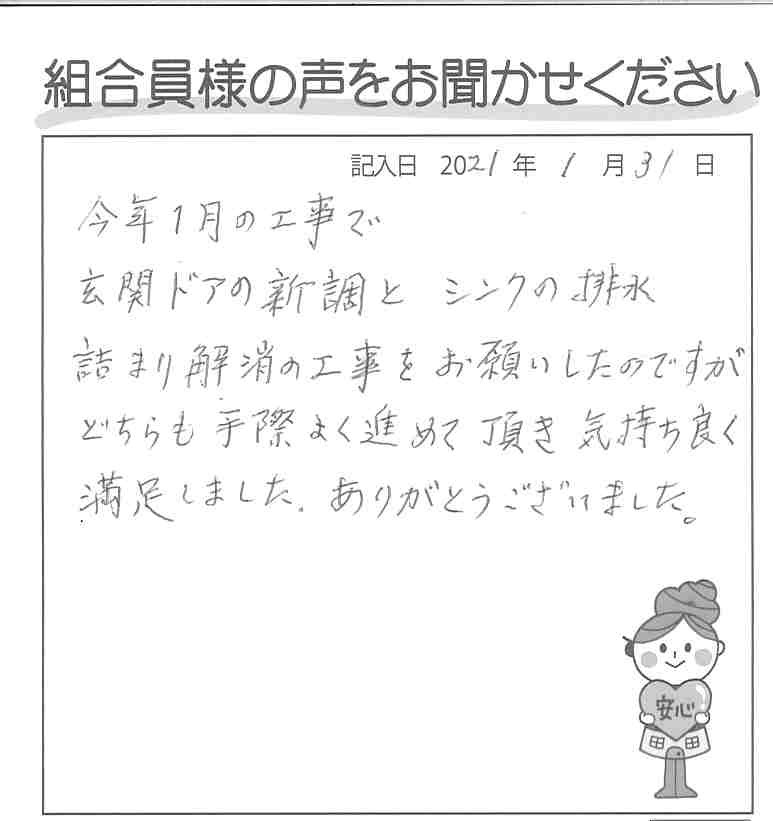 組合員様の声をお聞かせください
記入日 2021年 1月31日
今年1月の工事で
玄関ドアの新調と シンクの排水
詰まり解消の工事をお願いしたのですが
どちらも手際よく進めて頂き気持ち良く
満足しました。ありがとうございました。
安心